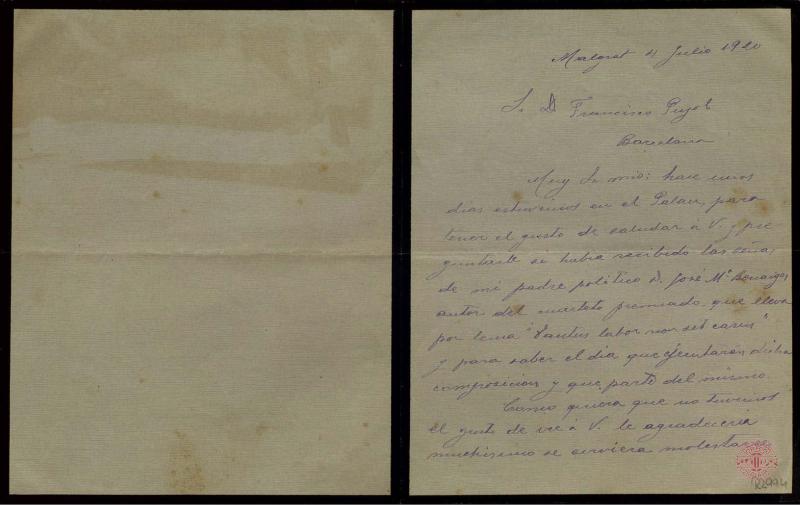 Malgrat 4 Julio 1920
S. D. Francisco Pujol
Barcelona
Muy Sr mio: hace unos
dias estuvimos en el Palau, para
tener el gusto de saludar á V. y pre
guntarle se habia recibido las señas
de mi padre politico D. José Mª
autor del cuarteto premiado que lleva
por lema "Tantus labor non sit casus"
y para saber el dia que ejecutarán dicha
composicion y que parte del mismo.
Como quiera que no tuvimos
el gusto de ver á V. le agradeceria
muchisimo se serviera molestarse